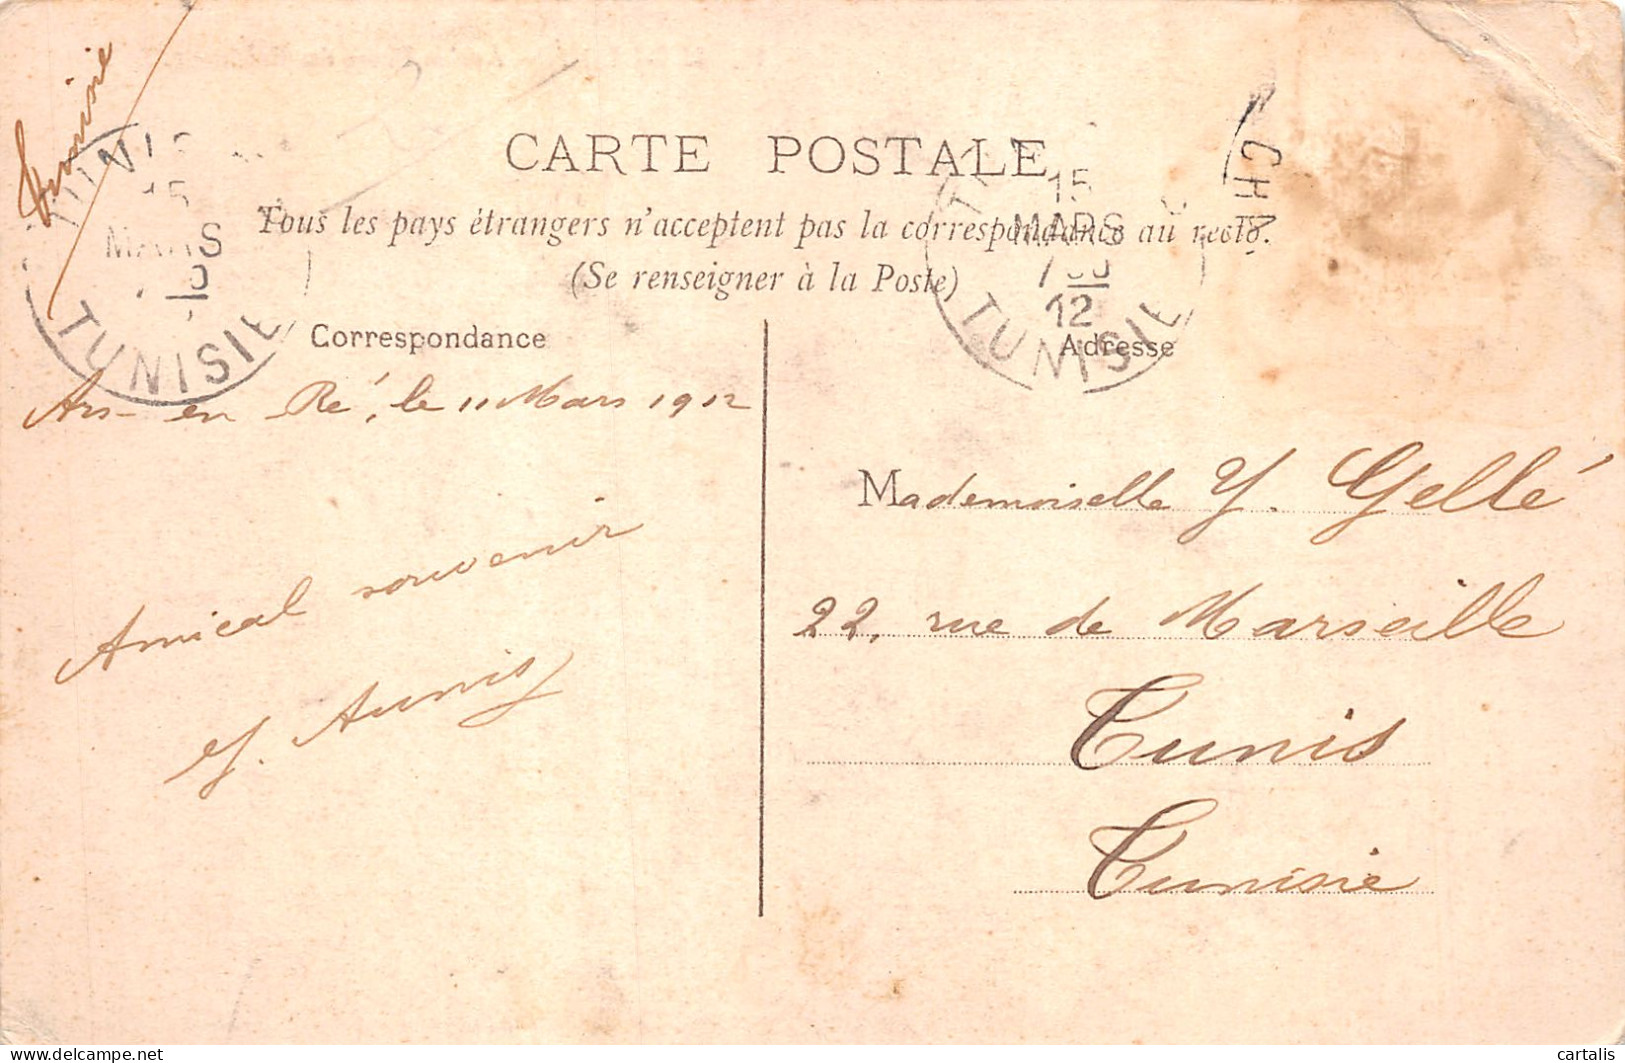 Tunisie
CARTE POSTALE
Tous les pays étrangers n'acceptent pas la correspondance au recto.
(Se renseigner à la Poste)
TUNIS
15
MARS
TUNISIE
15
MARS
12
TUNISIE
CH
Correspondance
Adresse
Ars-en Ré, le 11 Mars 1912
Amical souvenir
Y. Aunis
Mademoiselle Y. Gellé
22, rue de Marseille
Tunis
Tunisie
www.delcampe.net
cartalis